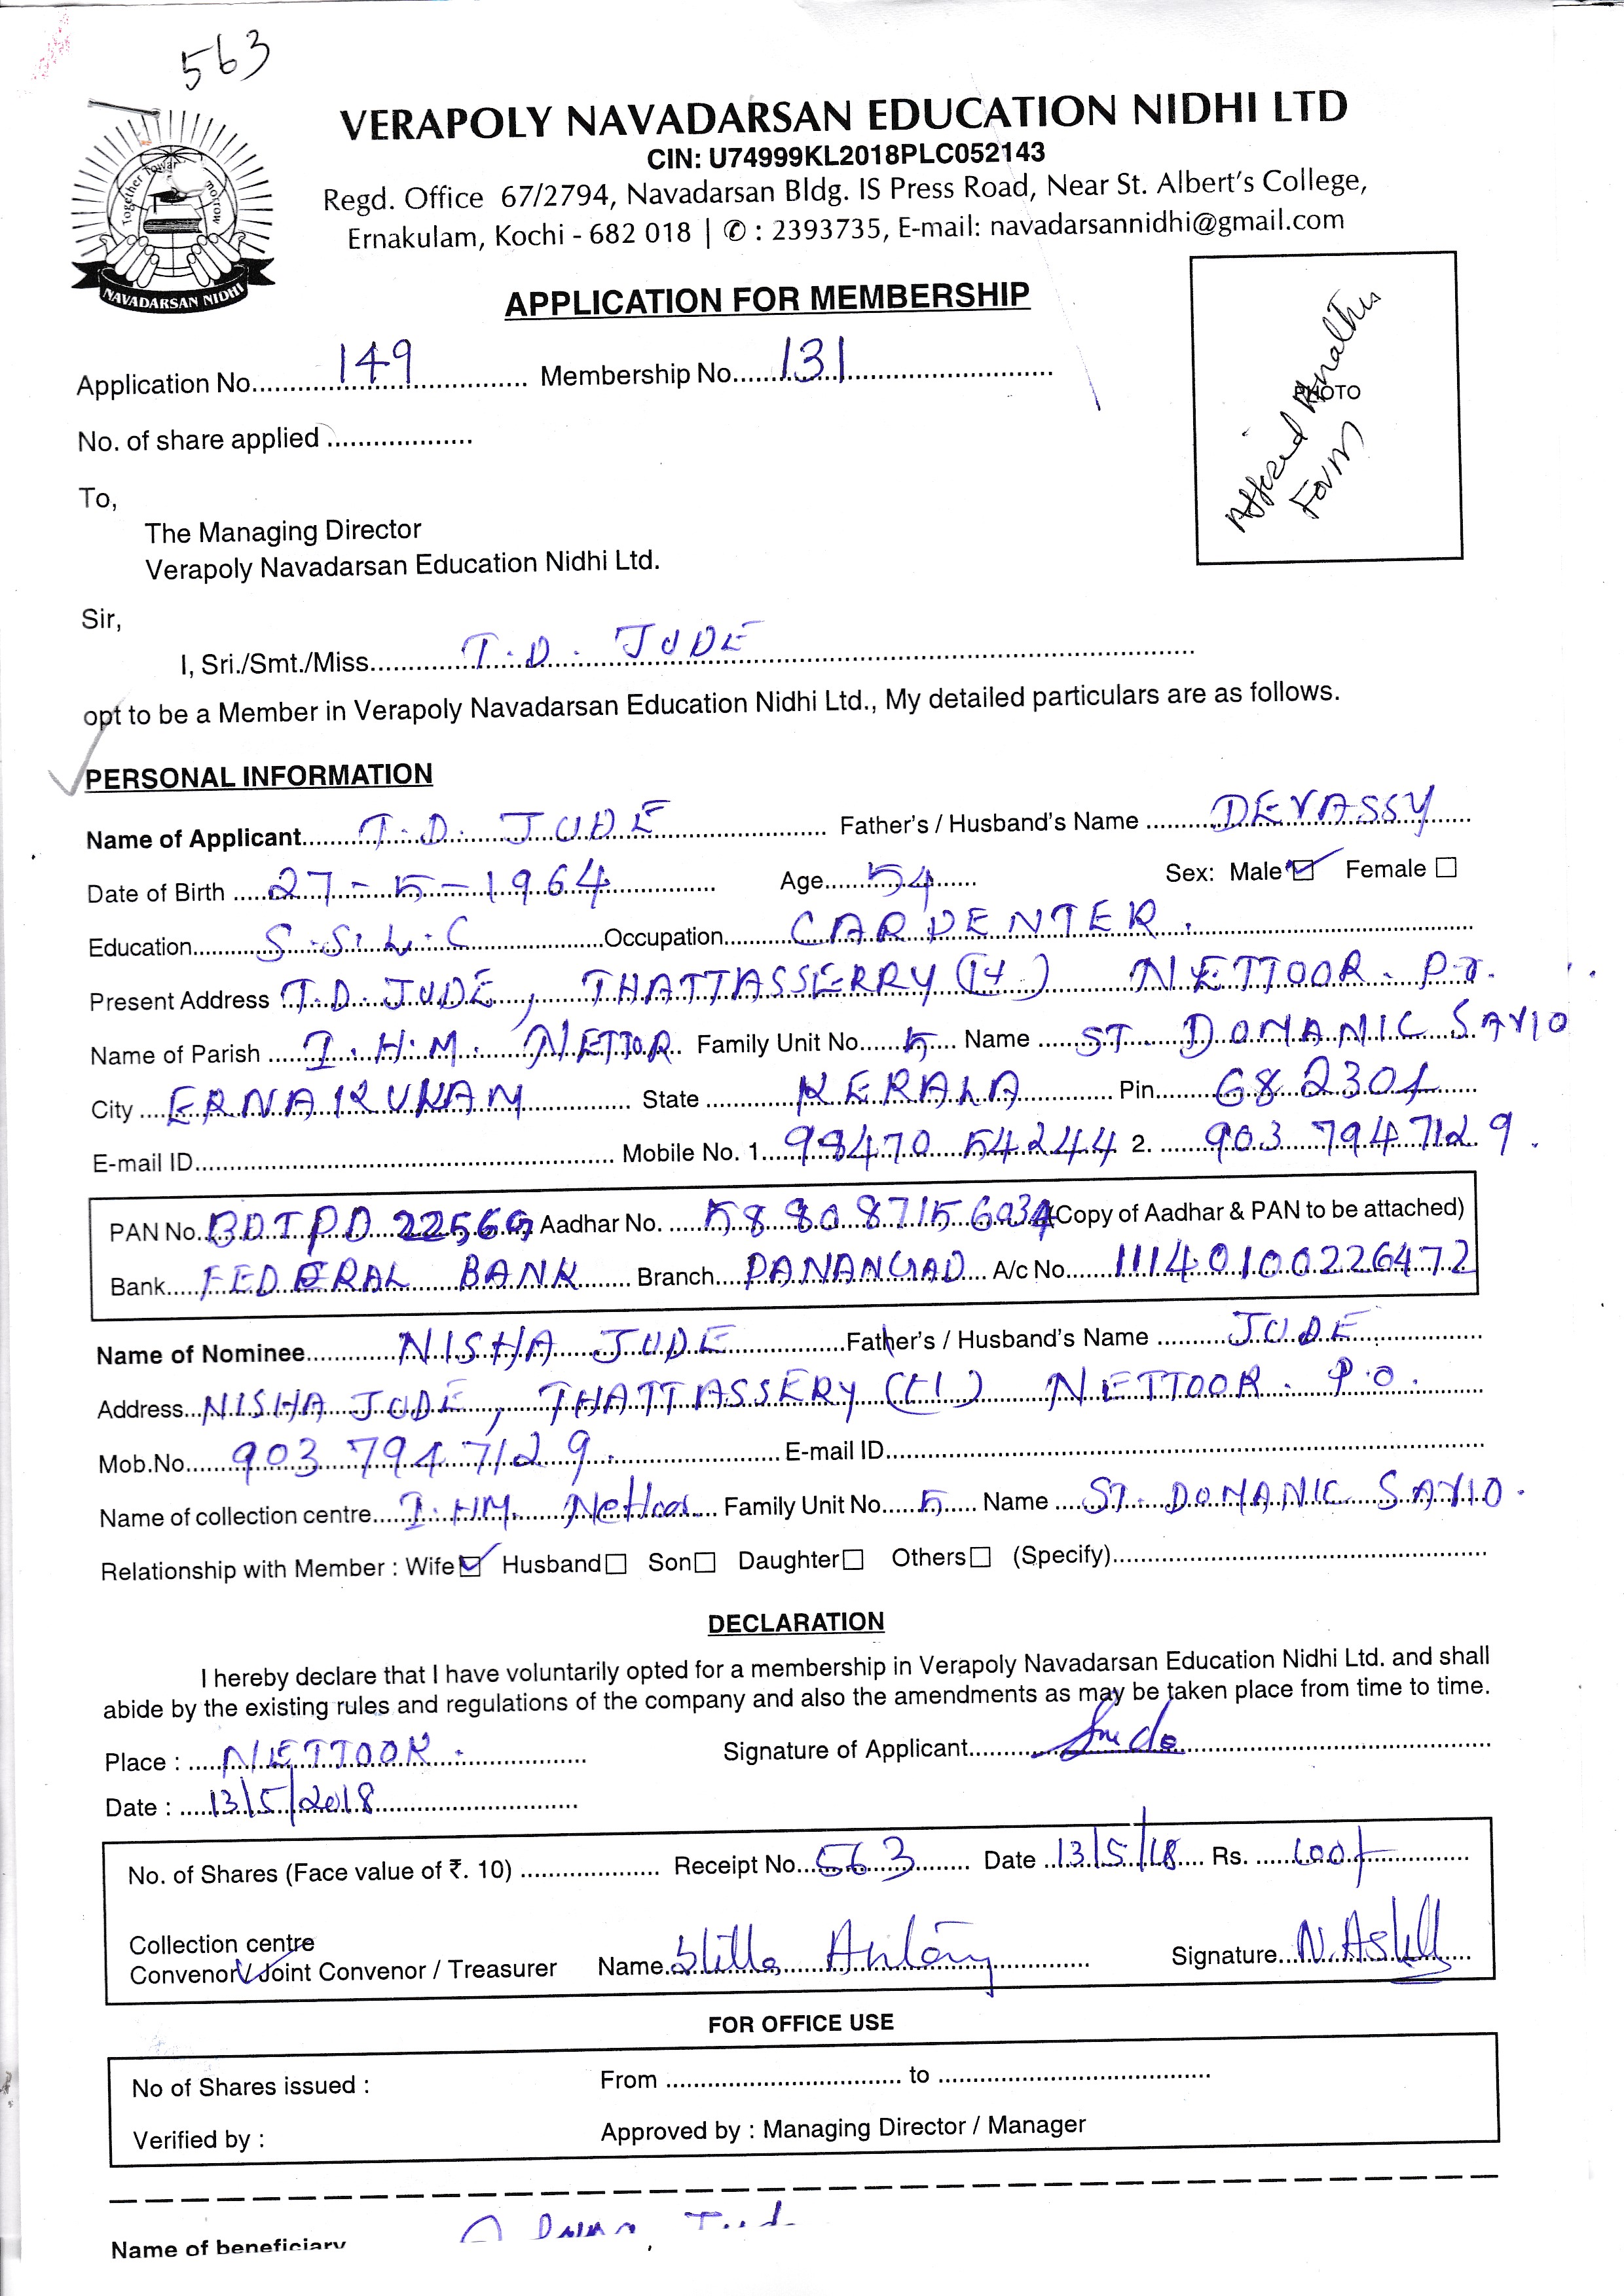 563
VERAPOLY NAVADARSAN EDUCATION NIDHI LTD
CIN: U74999KL2018PLC052143
Regd. Office 67/2794, Navadarsan Bldg. IS Press Road, Near St. Albert's College,
Ernakulam, Kochi - 682 018 | ✆ : 2393735, E-mail: navadarsannidhi@gmail.com
NAVADARSAN NIDHI
APPLICATION FOR MEMBERSHIP
PHOTO
Form
Application No. 149 Membership No. 131
No. of share applied
To,
The Managing Director
Verapoly Navadarsan Education Nidhi Ltd.
Sir,
I, Sri./Smt./Miss. T.D. JUDE
opt to be a Member in Verapoly Navadarsan Education Nidhi Ltd., My detailed particulars are as follows.
PERSONAL INFORMATION
Name of Applicant T.D. JUDE Father's / Husband's Name DEVASSY
Date of Birth 27-5-1964 Age 54 Sex: Male ☑ Female ☐
Education S.S.L.C Occupation CARPENTER.
Present Address T.D. JUDE, THATTASSERRY (H) NETTOOR. P.O.
Name of Parish I.H.M. NETTOR Family Unit No. 5 Name ST. DOMANIC SAVIO
City ERNAKULAM State KERALA Pin 682304
E-mail ID Mobile No. 1. 98470 54244 2. 903 794 7129.
PAN No. BDIPD 2256G Aadhar No. 5880 8715 6034 (Copy of Aadhar & PAN to be attached)
Bank FEDERAL BANK Branch PANANGAD A/c No. 11140100226472
Name of Nominee NISHA JUDE Father's / Husband's Name JUDE
Address NISHA JUDE, THATTASSERY (H) NETTOOR. P.O.
Mob.No. 903 794 7129. E-mail ID
Name of collection centre I.HM. Nettoor Family Unit No. 5 Name ST. DOMANIC SAVIO.
Relationship with Member : Wife ☑ Husband ☐ Son ☐ Daughter ☐ Others ☐ (Specify)
DECLARATION
I hereby declare that I have voluntarily opted for a membership in Verapoly Navadarsan Education Nidhi Ltd. and shall
abide by the existing rules and regulations of the company and also the amendments as may be taken place from time to time.
Place : NETTOOR. Signature of Applicant Jude
Date : 13/5/2018
No. of Shares (Face value of ₹. 10) Receipt No. 563 Date 13/5/18 Rs. 100/-
Collection centre
Convenor / Joint Convenor / Treasurer Name Stilla Antony Signature
FOR OFFICE USE
No of Shares issued : From to
Verified by : Approved by : Managing Director / Manager
Name of beneficiary